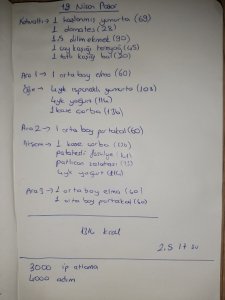 19 Nisan Pazar
Kahvaltı → 1 haşlanmış yumurta (69)
1 domates (28)
1.5 dilim ekmek (90)
1 çay kaşığı tereyağ (45)
1 tatlı kaşığı bal (30)
Ara 1 → 1 orta boy elma (60)
Öğle → 4yk ıspanaklı yumurta (103)
4yk yoğurt (114)
1 kase çorba (126)
Ara 2 → 1 orta boy portakal (60)
Akşam → 1 kase çorba (126)
patatesli fasulye
patlıcan salatası
4yk yoğurt (114)
Ara 3 → 1 orta boy elma (60)
1 orta boy portakal (60)
kcal
2.5 lt su
3000 ip atlama
4000 adım